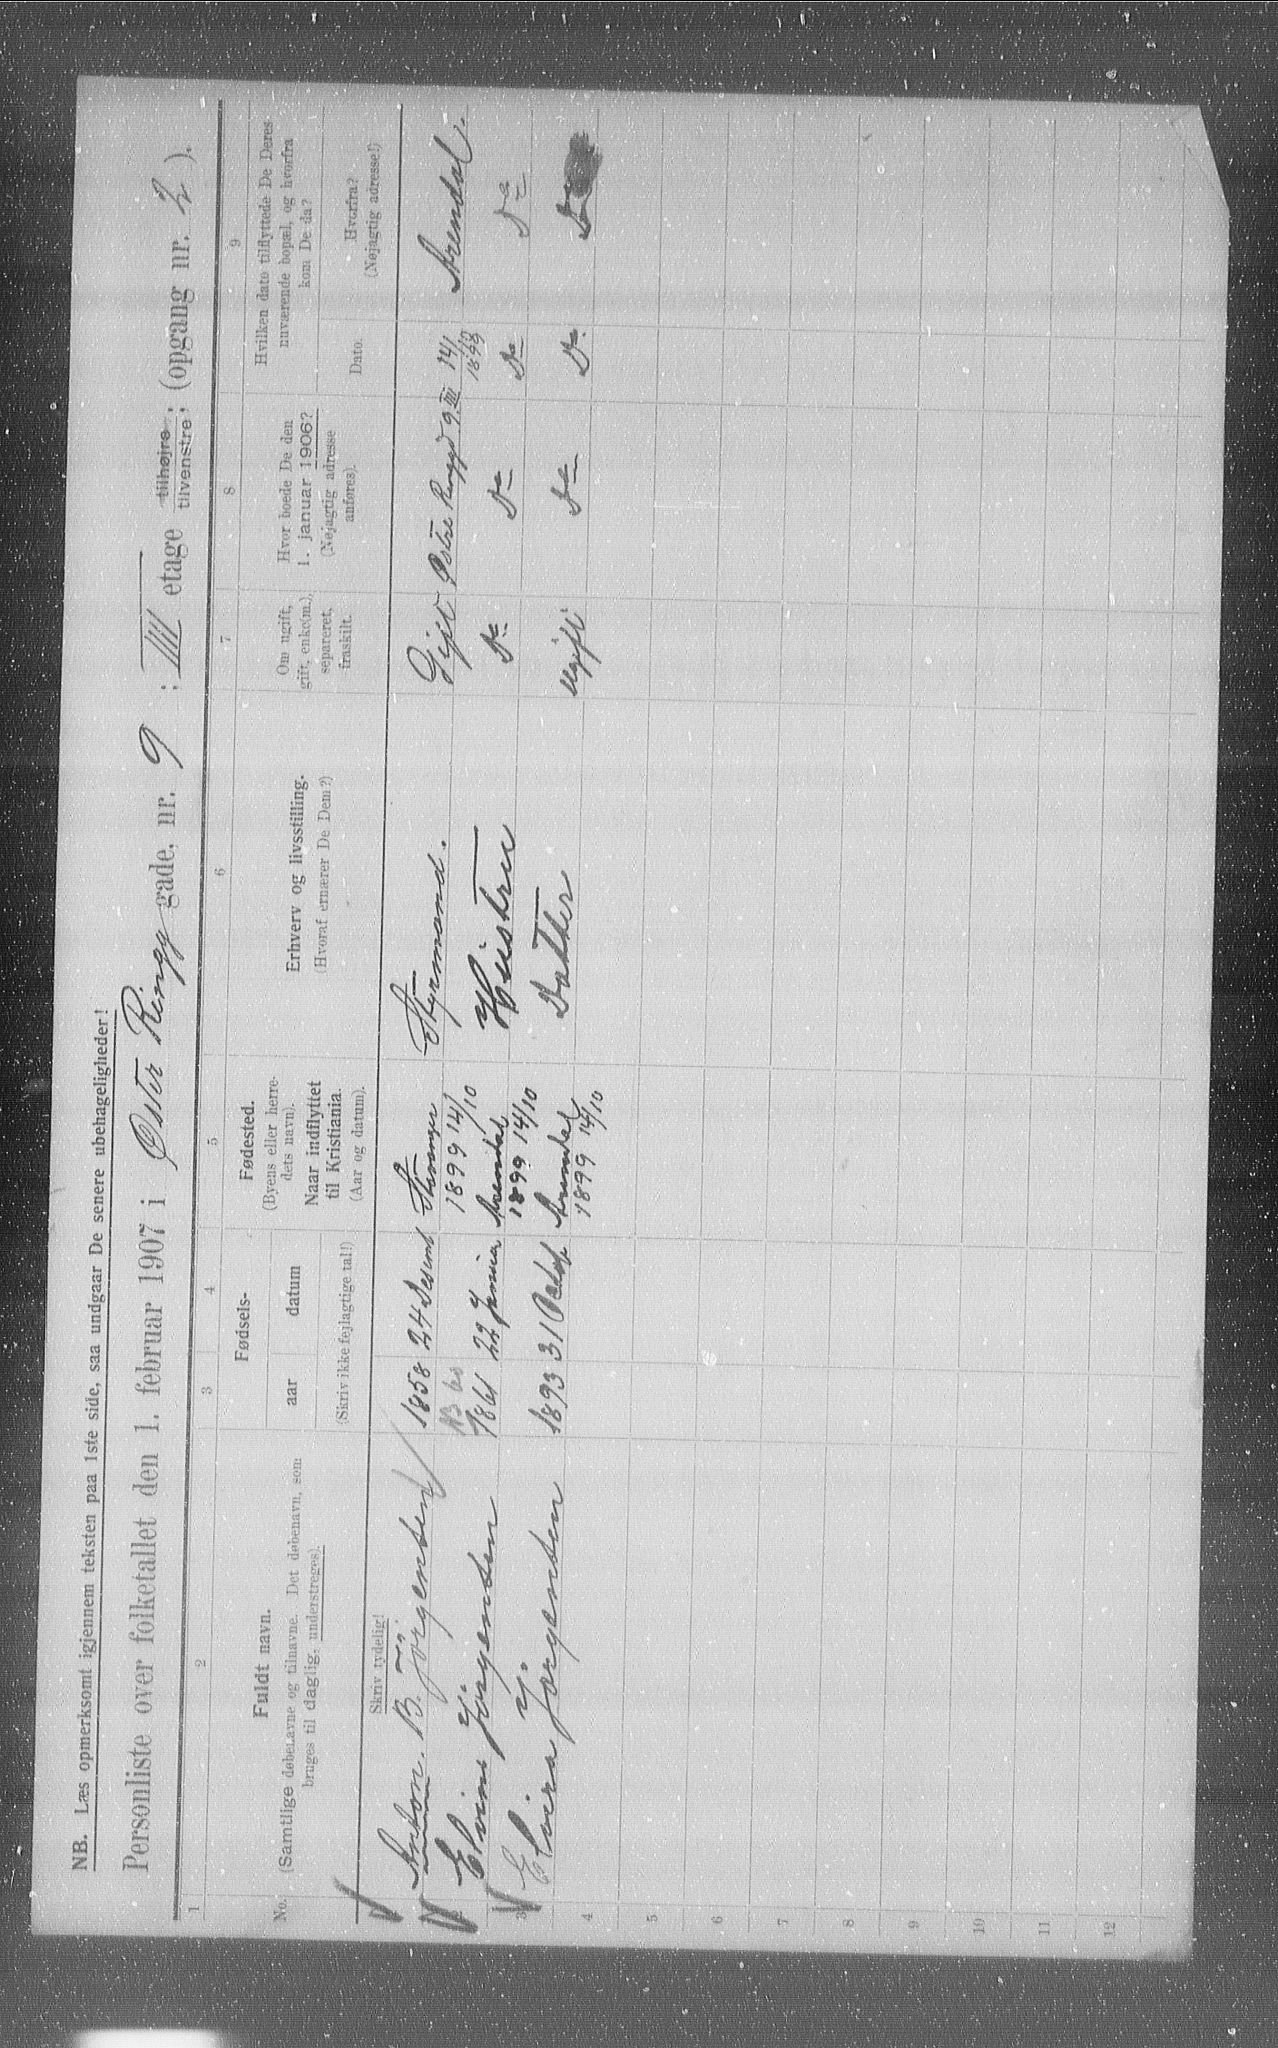 NB. Læs opmerksomt igjennem teksten paa 1ste side, saa undgaar De senere ubehageligheder!
Personliste over folketallet den 1. februar 1907 i Østr Ringg gade, nr. 9 ; III etage tilhøjre, tilvenstre, (opgang nr. 2 ).
1 2 3 4 5 6 7 8 9
No.
Fuldt navn.
(Samtlige døbenavne og tilnavne. Det døbenavn, som
bruges til daglig, understreges).
Skriv tydelig!
Fødsels-
aar datum
(Skriv ikke fejlagtige tal!)
Fødested.
(Byens eller herre-
dets navn).
Naar indflyttet
til Kristiania.
(Aar og datum).
Erhverv og livsstilling.
(Hvoraf ernærer De Dem?)
Om ugift,
gift, enke(m.),
separeret,
fraskilt.
Hvor boede De den
1. januar 1906?
(Nøjagtig adresse
anføres).
Hvilken dato tilflyttede De Deres
nuværende bopæl, og hvorfra
kom De da?
Dato.
Hvorfra?
(Nøjagtig adresse!)
Anton. B. Jörgensen 1858 24 Desemb Stavanger 1899 14/10 Styrmand. Gift Østre Ringgd 9 III 14/10 1899 Arendal.
2 Elvine Jörgensen 1861 22 Januar Arendal 1899 14/10 Hüstru Do Do Do Do
3 Elvira Jörgensen 1893 31 Octob Arendal 1899 14/10 Datter Ugift Do Do
4
5
6
7
8
9
10
11
12